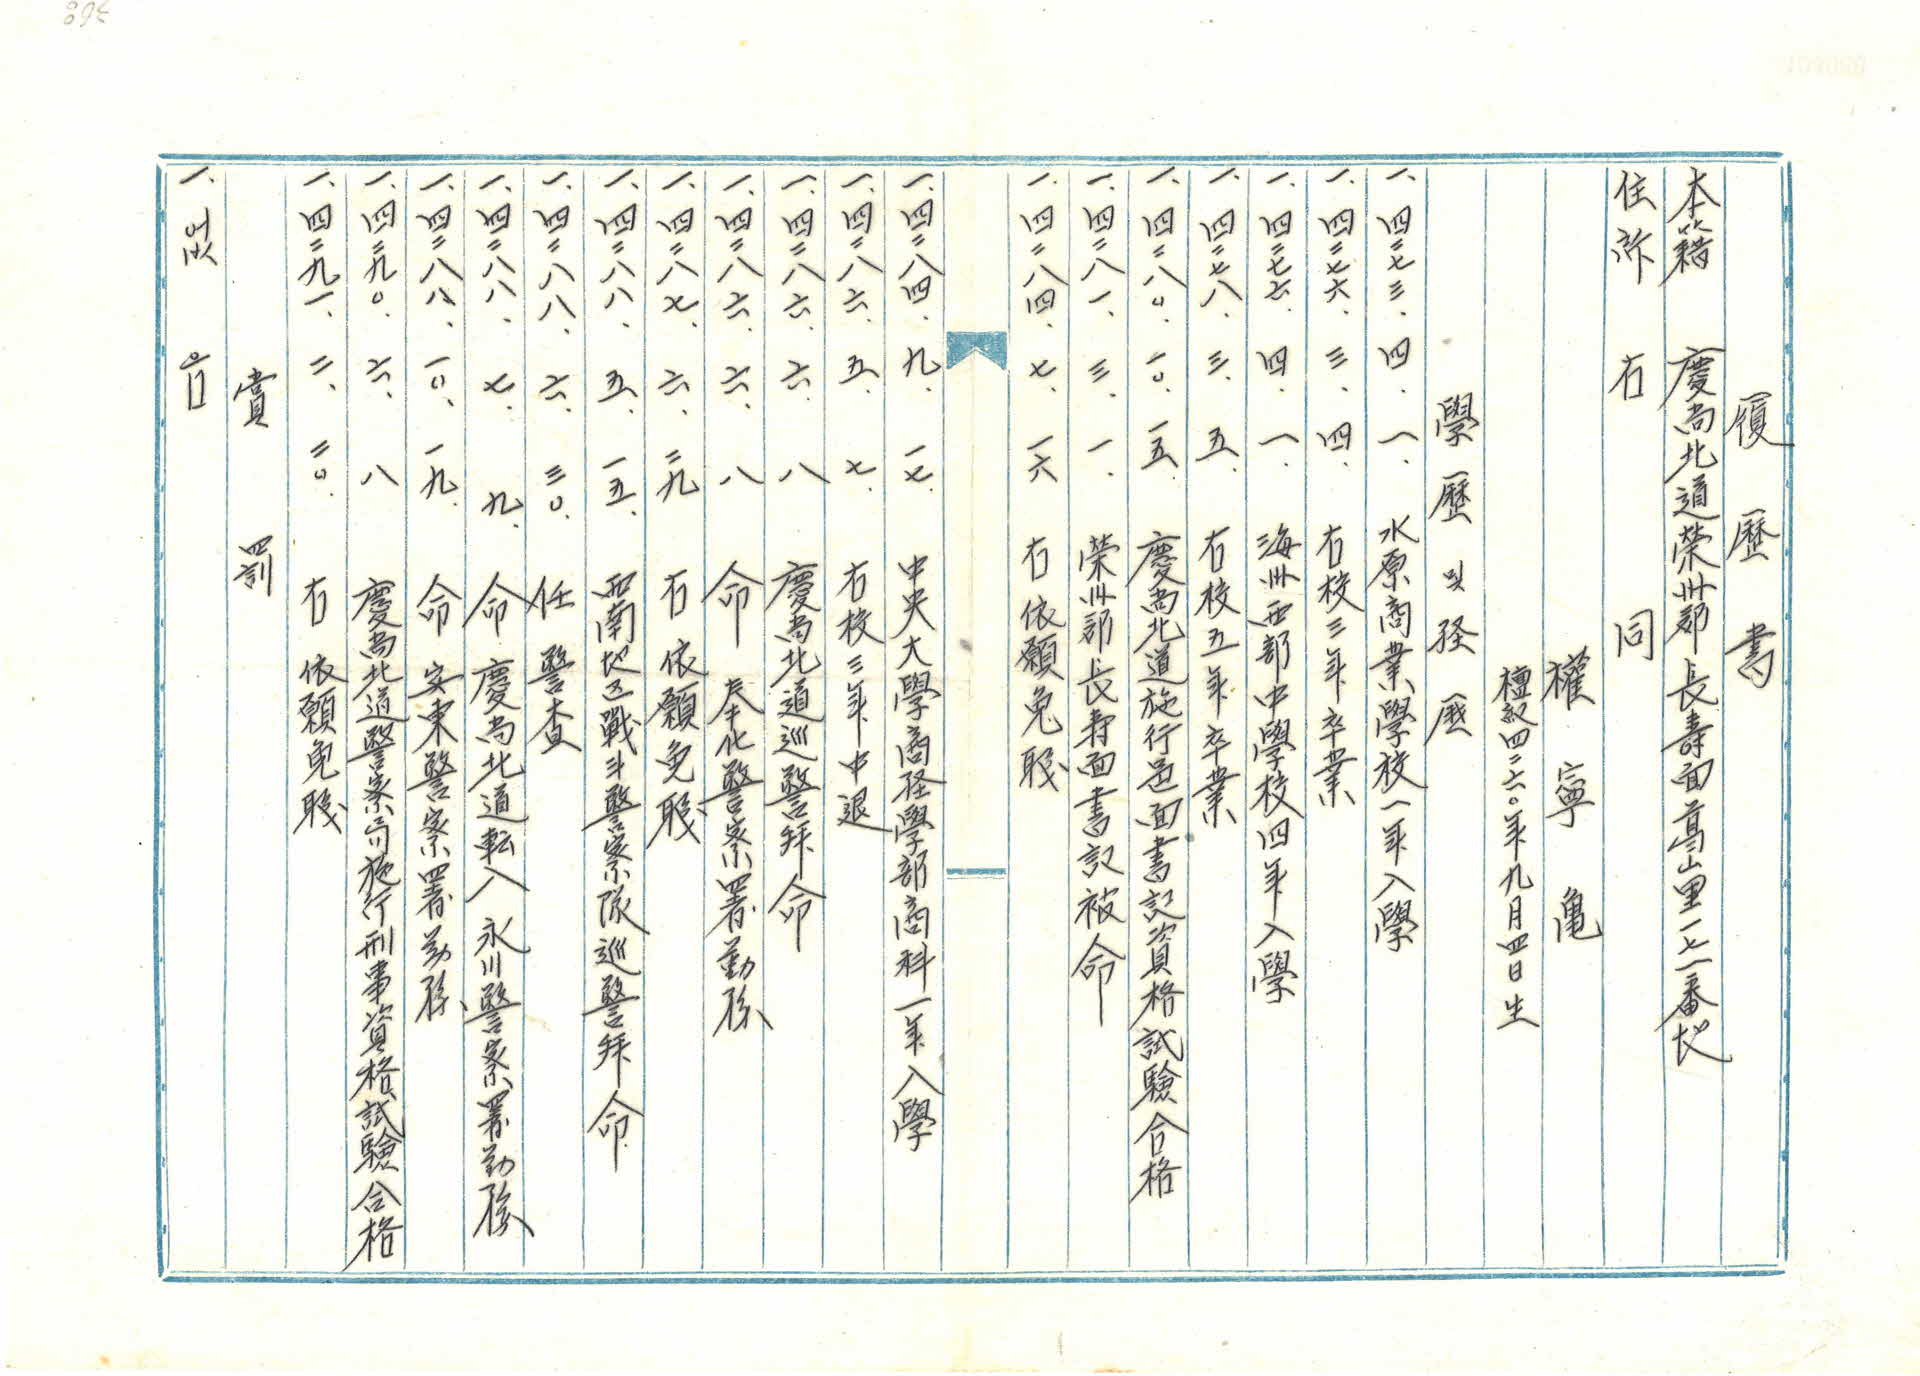 履歷書
本籍 慶尚北道榮州郡長壽面葛山里一七一番地
住所 右同
權寧龜
檀紀四二六〇年九月四日生
學歷및経歴
一. 四二七三. 四. 一. 水原商業學校一年入學
一. 四二七六. 三. 四. 右校三年卒業
一. 四二七六. 四. 一. 海州西部中學校四年入學
一. 四二七八. 三. 五. 右校五年卒業
一. 四二八〇. 一〇. 一五. 慶尚北道施行邑面書記資格試驗合格
一. 四二八一. 三. 一. 榮州郡長壽面書記被命
一. 四二八四. 七. 一六 右依願免職
一. 四二八四. 九. 一七. 中央大學商経學部商科一年入學
一. 四二八六. 五. 七. 右校三年中退
一. 四二八六. 六. 八 慶尚北道巡警拜命
一. 四二八六. 六. 八 命 奉化警察署勤務
一. 四二八七. 六. 二九 右依願免職
一. 四二八八. 五. 一五. 西南地区戰斗警察隊巡警拜命.
一. 四二八八. 六. 三〇. 任警査
一. 四二八八. 七. 九. 命慶尚北道転入 永川警察署勤務
一. 四二八八. 一〇. 一九. 命 安東警察署勤務
一. 四二九〇. 六. 八 慶尚北道警察局施行刑事資格試驗合格
一. 四二九一. 二. 二〇. 右依願免職
賞罰
一. 없음